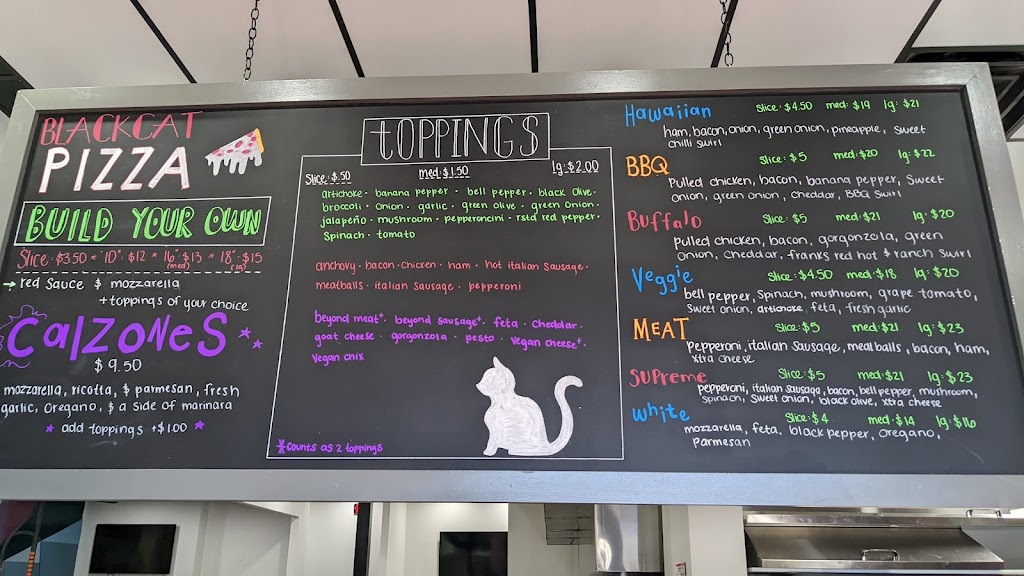 BLACKCAT
PIZZA
BUILD YOUR OWN
Slice: $3.50 * 10": $12 * 16": $13 * 18": $15
(med) (lg)
→ red sauce & mozzarella
+toppings of your choice
CalZONeS
$9.50
mozzarella, ricotta, & parmesan, fresh
garlic, oregano, & a side of marinara
add toppings +$1.00
TOPPINGS
Slice: $.50 med: $1.50 lg: $2.00
artichoke · banana pepper · bell pepper · black olive ·
broccoli · onion · garlic · green olive · green onion ·
jalapeño · mushroom · pepperoncini · rstd red pepper ·
spinach · tomato
anchovy · bacon · chicken · ham · hot italian sausage ·
meatballs · italian sausage · pepperoni
beyond meat* · beyond sausage* · feta · cheddar ·
goat cheese · gorgonzola · pesto · vegan cheese* ·
vegan chix
*counts as 2 toppings
Hawaiian Slice: $4.50 med: $19 lg: $21
ham, bacon, onion, green onion, pineapple, sweet
chilli swirl
BBQ Slice: $5 med: $20 lg: $22
Pulled chicken, bacon, banana pepper, sweet
onion, green onion, cheddar, BBQ swirl
Buffalo Slice: $5 med: $21 lg: $20
pulled chicken, bacon, gorgonzola, green
onion, cheddar, franks red hot & ranch swirl
Veggie Slice: $4.50 med: $18 lg: $20
bell pepper, spinach, mushroom, grape tomato,
sweet onion, artichoke, feta, fresh garlic
MEAT Slice: $5 med: $21 lg: $23
Pepperoni, italian sausage, meatballs, bacon, ham,
xtra cheese
Supreme Slice: $5 med: $21 lg: $23
pepperoni, italian sausage, bacon, bell pepper, mushroom,
spinach, sweet onion, black olive, xtra cheese
white Slice: $4 med: $14 lg: $16
mozzarella, feta, black pepper, oregano,
parmesan